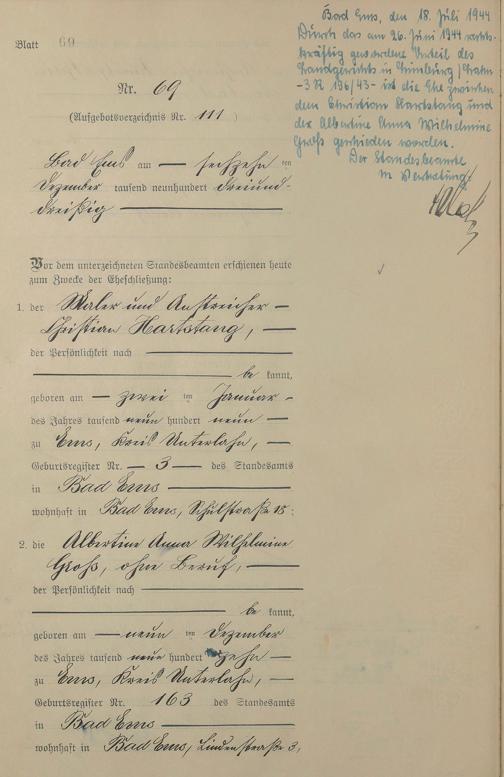 Bad Ems, den 18. Juli 1944
Durch das am 26. Juni 1944 rechts-
kräftig gewordene Urteil des
Landgerichts in Limburg/Lahn
-3 R 196/43- ist die Ehe zwischen
dem Christian Hartstang und
der Albertine Anna Wilhelmine
Groß geschieden worden.
Der Standesbeamte
In Vertretung
Blatt 69
Nr. 69
(Aufgebotsverzeichnis Nr. 111)
Bad Ems am — sechzehn ten
Dezember tausend neunhundert dreiund-
dreißig
Vor dem unterzeichneten Standesbeamten erschienen heute
zum Zwecke der Eheschließung:
1. der Maler und Anstreicher —
Christian Hartstang, —
der Persönlichkeit nach
be kannt,
geboren am — zwei ten Januar -
des Jahres tausend neun hundert neun —
zu Ems, Kreis Unterlahn, —
Geburtsregister Nr. — 3 — des Standesamts
in Bad Ems
wohnhaft in Bad Ems, Schulstraße 15;
2. die Albertine Anna Wilhelmine
Groß, ohne Beruf, —
der Persönlichkeit nach
be kannt,
geboren am — neun ten Dezember
des Jahres tausend neun hundert zehn —
zu Ems, Kreis Unterlahn, —
Geburtsregister Nr. 163 des Standesamts
in Bad Ems
wohnhaft in Bad Ems, Lindenstraße 3,